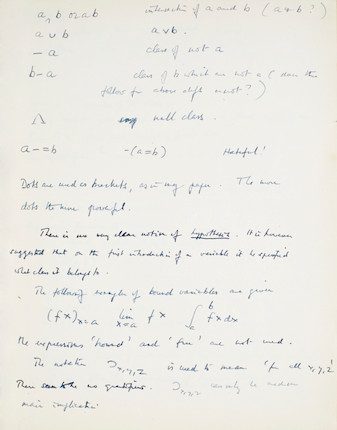 a ∩ b or ab intersection of a and b (a + b?)
a ∪ b a v b.
– a class of not a
b – a class of b which are not a (does this
follow from above defs. ?)
Λ null class.
a – = b –(a = b) Hateful!
Dots are used as brackets, as in my paper. The more
dots the more powerful.
There is no very clear notion of hypothesis. It is however
suggested that on the first introduction of a variable it be specified
what class it belongs to.
The following examples of bound variables are given
(f x)x=a lim x=a f x ∫ab f x dx
The expressions 'bound' and 'free' are not used.
The notation ⊃x,y,z is used to mean 'for all x, y, z'
There seem to be no quantifiers. ⊃x,y,z can only be used on
main implication